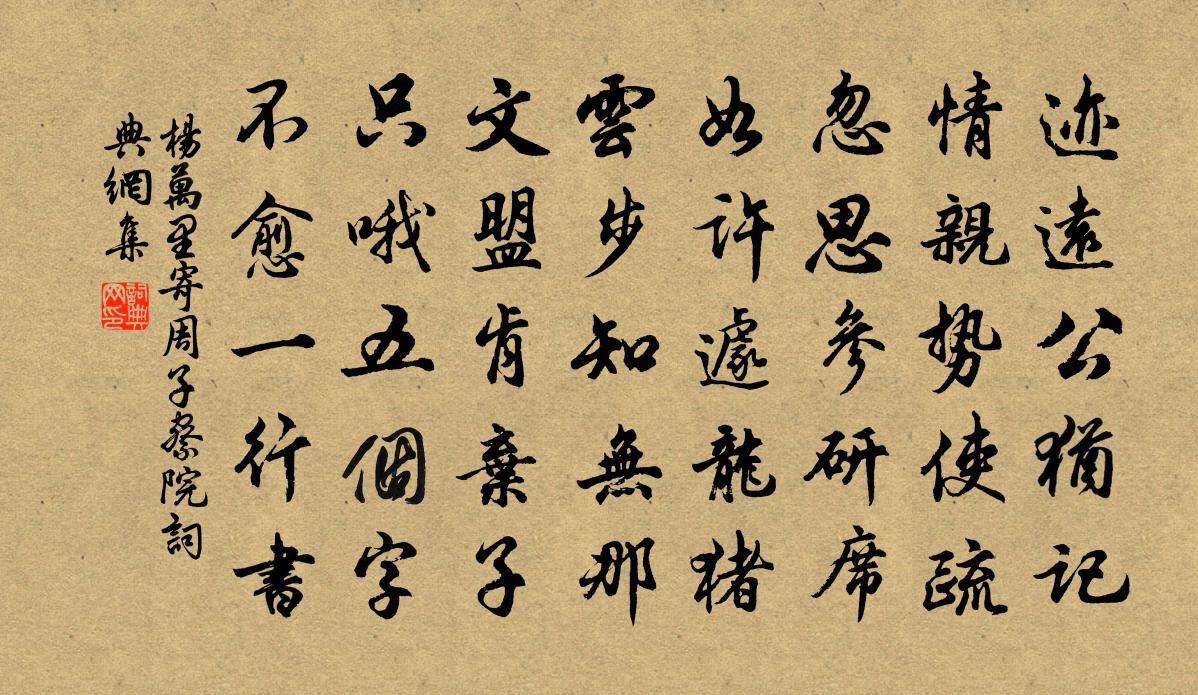 迹遠公猶記
情親勢使疏
忽思參研席
如許遽龍豬
雲步知無那
文盟肯棄子
只哦五個字
不愈一行書
楊萬里寄周子察院詞
典網集
詞典
网印